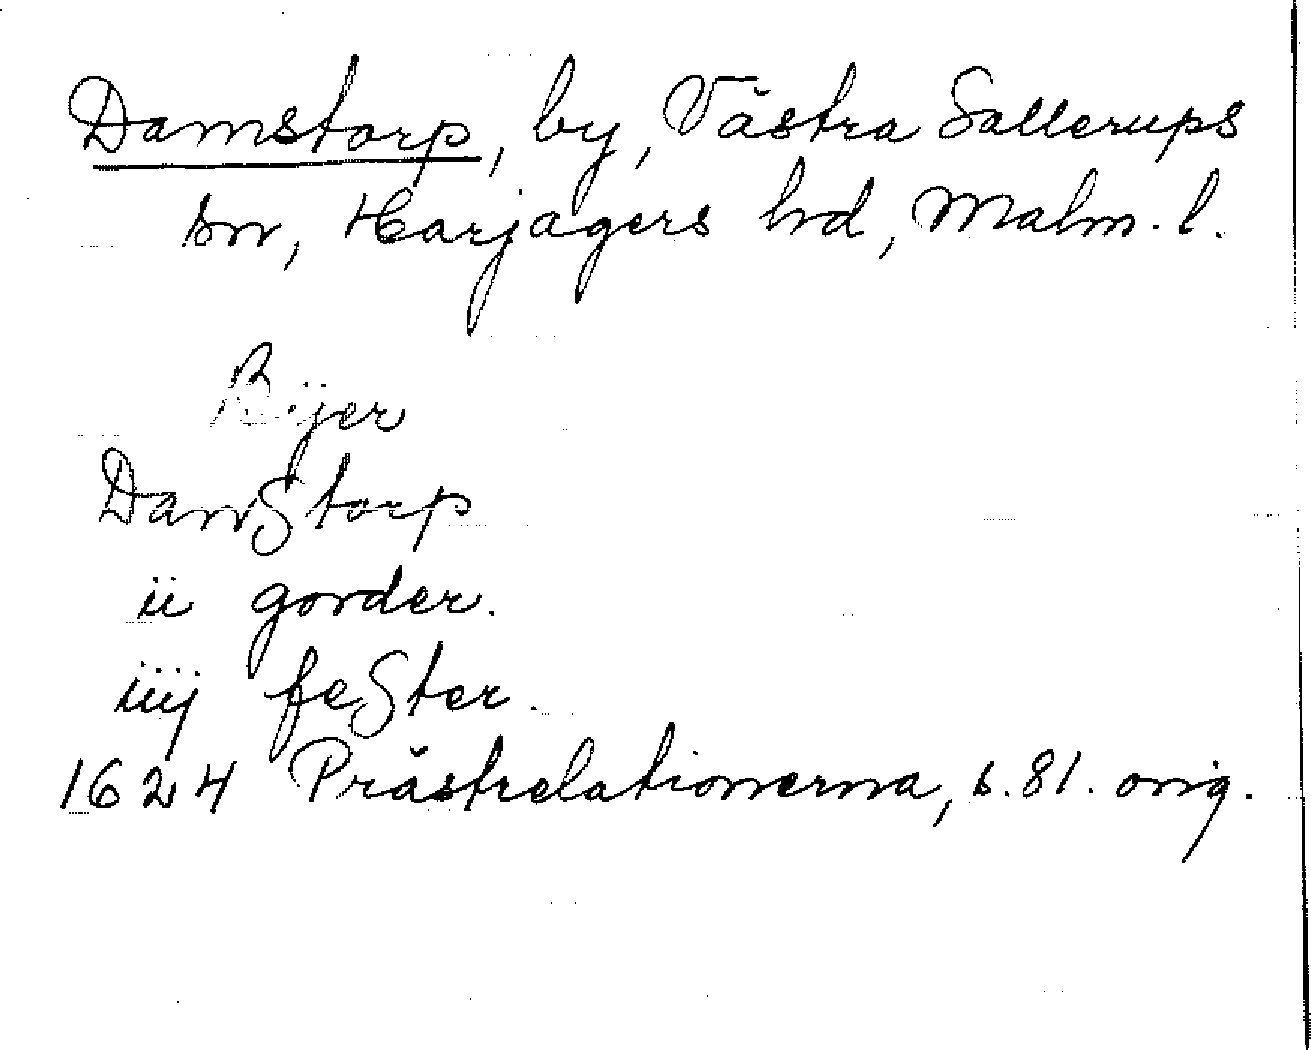 Damstorp, by, Västra Sallerups
sn, Harjagers hrd, Malm. l.
Bÿer
DamStorp
ii gorder.
iiij feSter.
1624 Prästrelationerna, s. 81. orig.